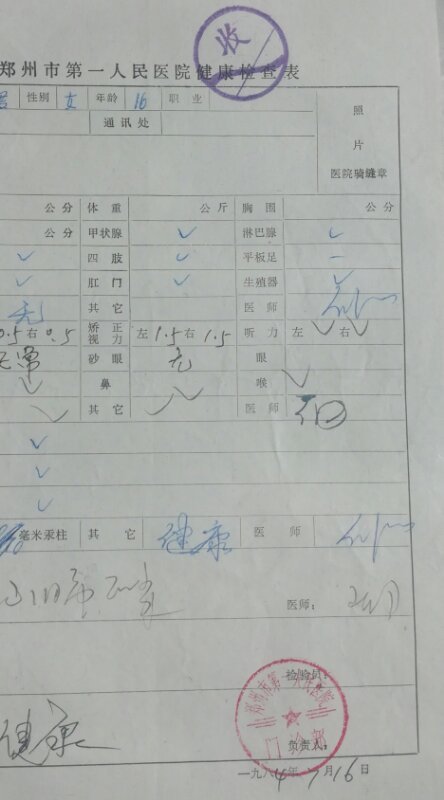 收
郑州市第一人民医院健康检查表
性别 女 年龄 16 职业
通讯处
照
片
医院骑缝章
公分 体重 公斤 胸围 公分
公分 甲状腺 ✓ 淋巴腺 ✓
✓ 四肢 ✓ 平板足 一
✓ 肛门 ✓ 生殖器 ✓
无 其它 医师
0.5 右 0.5 矫正视力 左 1.5 右 1.5 听力 左 ✓ 右 ✓
砂眼 无 眼
✓ 鼻 喉 ✓
✓ 其它 ✓ 医师
✓
✓
✓
毫米汞柱 其它 健康 医师
医师:
检验员:
郑州市第一人民医院
门诊部
健康
负责人:
一九八4年7月16日